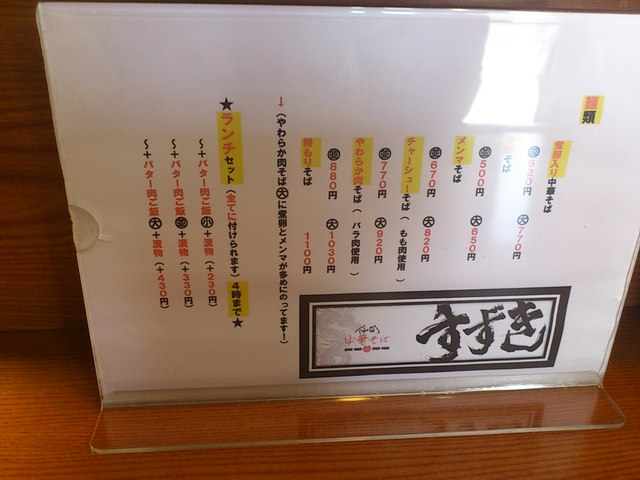 麺類
煮卵入り中華そば
並620円 大770円
そば
並500円 大650円
メンマそば
並670円 大820円
チャーシューそば(もも肉使用)
並770円 大920円
やわらか肉そば(バラ肉使用)
並880円 大1030円
特もりそば 1100円
↓(やわらか肉そば大に煮卵とメンマが多めにのってますー)
★ランチセット(全てに付けられます)4時まで★
~+バター肉ご飯小+漬物(+230円)
~+バター肉ご飯並+漬物(+330円)
~+バター肉ご飯大+漬物(+430円)
仙台
中華そば
すずき